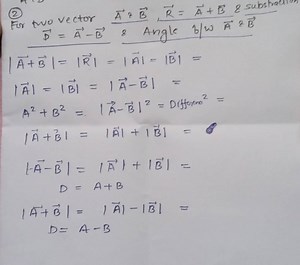 ② For two vector A⃗ & B⃗, R⃗ = A⃗ + B⃗ & substraction
D⃗ = A⃗ - B⃗ & Angle b/w A⃗ & B⃗
|A⃗ + B⃗| = |R⃗| = |A⃗| - |B⃗| =
|A⃗| = |B⃗| = |A⃗ - B⃗| =
A² + B² = |A⃗ - B⃗|² = =
|A⃗ + B⃗| = |A⃗| + |B⃗| =
|A⃗ - B⃗| = |A⃗| + |B⃗| =
D = A + B
|A⃗ + B⃗| = |A⃗| - |B⃗| =
D = A - B